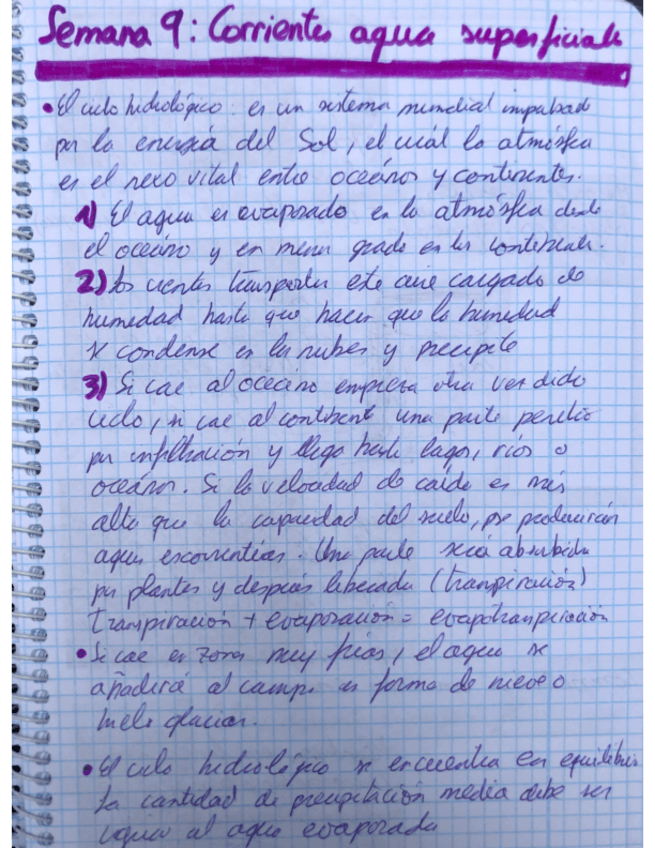 Semana 9: Corrientes agua superficiale
• El ciclo hidrológico: es un sistema mundial impulsado
por la energía del Sol, el cuál la atmósfera
es el nexo vital entre océanos y continentes.
1) El agua es evaporado en la atmósfera desde
el oceáno y en menor grado en los continentes.
2) los vientos transportan este aire cargado de
humedad hasta que hacen que la humedad
se condense en las nubes y precipite
3) Si cae al oceáno empieza otra vez dicho
ciclo, si cae al continente una parte penetra
por infiltración y llega hasta lagos, ríos o
oceános. Si la velocidad de caída es más
alta que la capacidad del suelo, se producirán
aguas escorrentías. Una parte será absorbida
por plantas y después liberada (transpiración)
transpiración + evaporación = evapotranspiración
• Si cae en zonas muy frías, el agua se
añadirá al campo en forma de nieve o
hielo glaciar.
• El ciclo hidrológico se encuentra en equilibrio
la cantidad de precipitación media debe ser
igual al agua evaporada